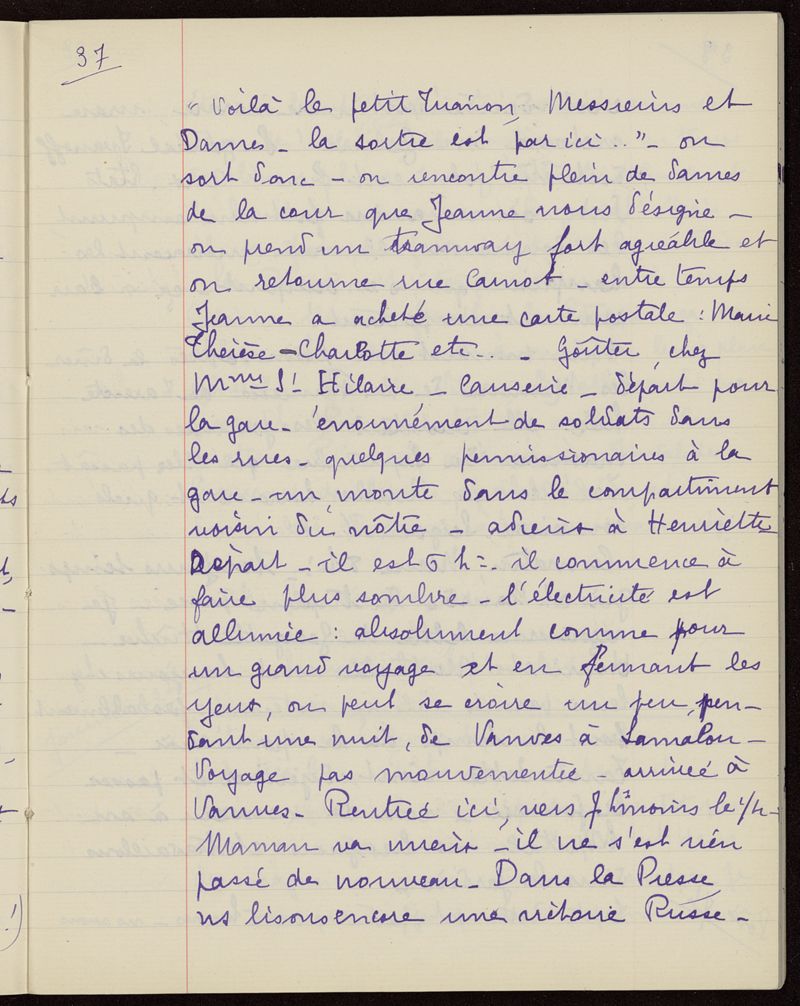 37
"Voilà le petit Trianon Messieurs et
Dames - la sortie est par ici.." - on
sort donc - on rencontre plein de dames
de la cour que Jeanne nous désigne -
on prend un tramway fort agréable et
on retourne rue Carnot - entre temps
Jeanne a acheté une carte postale : Marie
Thérèse - Charlotte etc... - Goûter chez
Mmes St Hilaire - Causerie - départ pour
la gare - énormément de soldats dans
les rues - quelques permissionaires à la
gare - un monte dans le compartiment
voisin du nôtre - adieux à Henriette
Départ - il est 6 h = . il commence à
faire plus sombre - l'électricité est
allumée : absolument comme pour
un grand voyage et en fermant les
yeux, on peut se croire un peu, pen-
dant une nuit, de Vanves à Lamalou -
Voyage pas mouvementé - arrivée à
Vanves - Rentrée ici, vers 7 h moins le 1/4 -
Maman va mieux - il ne s'est rien
passé de nouveau - Dans la Presse
ns lisons encore une victoire Russe -